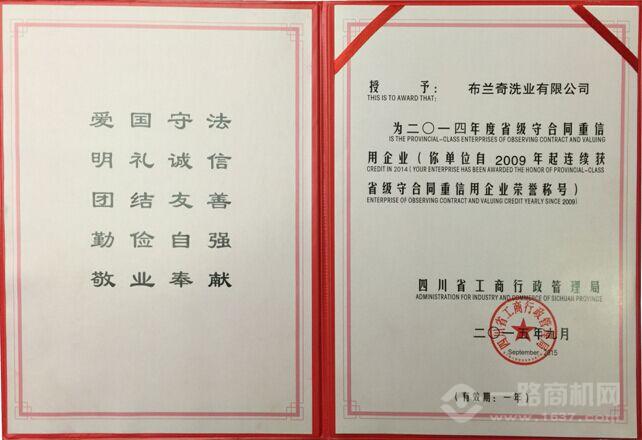 爱国守法
明礼诚信
团结友善
勤俭自强
敬业奉献
授 予： 布兰奇洗业有限公司
THIS IS TO AWARD THAT:
为二〇一四年度省级守合同重信
IS THE PROVINCIAL-CLASS ENTERPRISES OF OBSERVING CONTRACT AND VALUING
用企业（你单位自 2009 年起连续获
CREDIT IN 2014 (YOUR ENTERPRISE HAS BEEN AWARDED THE HONOR OF PROVINCIAL-CLASS
省级守合同重信用企业荣誉称号）
ENTERPRISE OF OBSERVING CONTRACT AND VALUING CREDIT YEARLY SINCE 2009)
四川省工商行政管理局
ADMINISTRATION FOR INDUSTRY AND COMMERCE OF SICHUAN PROVINCE
四川省工商行政管理局
二〇一五年九月
September, 2015
（有效期：一年）
一路商机网
www.1637.com